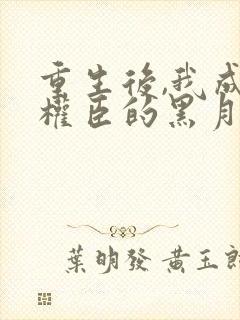 重生後,我成
權臣的黑月
葉明發 黃玉郎